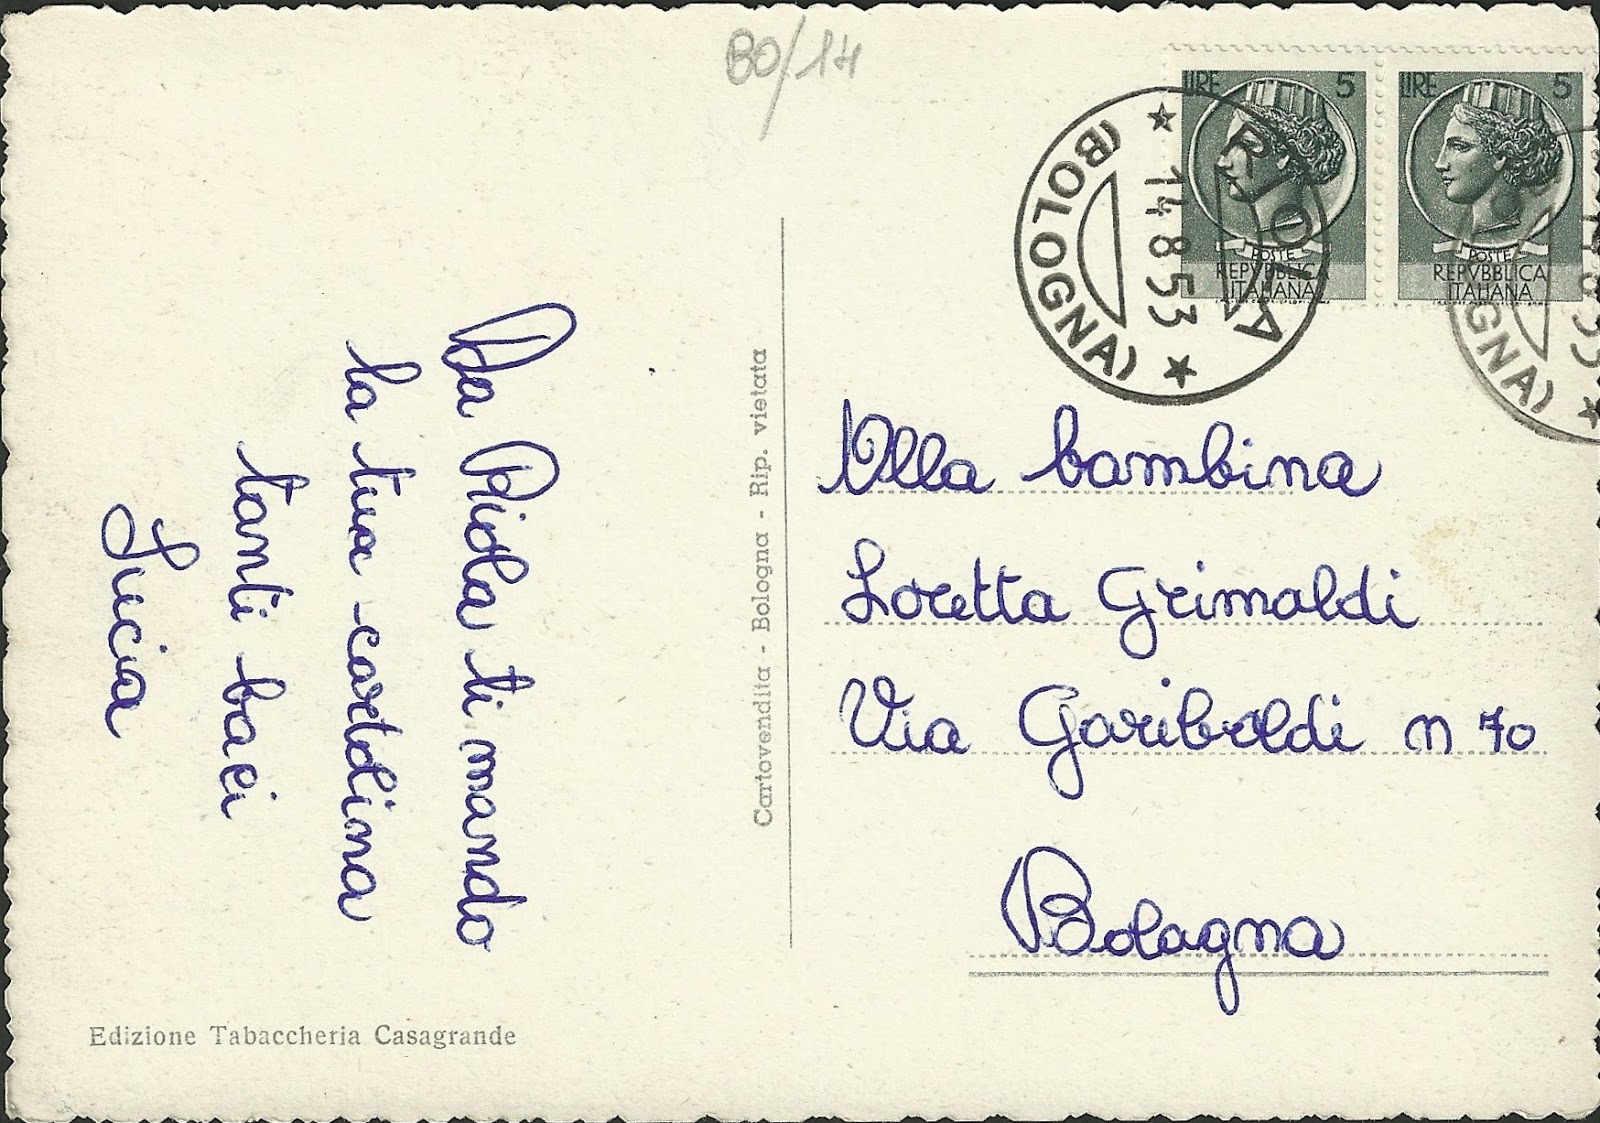 BO/14
LIRE 5
POSTE
REPVBBLICA
ITALIANA
LIRE 5
POSTE
REPVBBLICA
ITALIANA
RIOLA
14 8 53
(BOLOGNA)
14 8 53
GNA)
Da Riola ti mando
la tua cartolina
tanti baci
Lucia
Cartovendita - Bologna - Rip. vietata
Alla bambina
Loretta Grimaldi
Via Garibaldi n 70
Bologna
Edizione Tabaccheria Casagrande